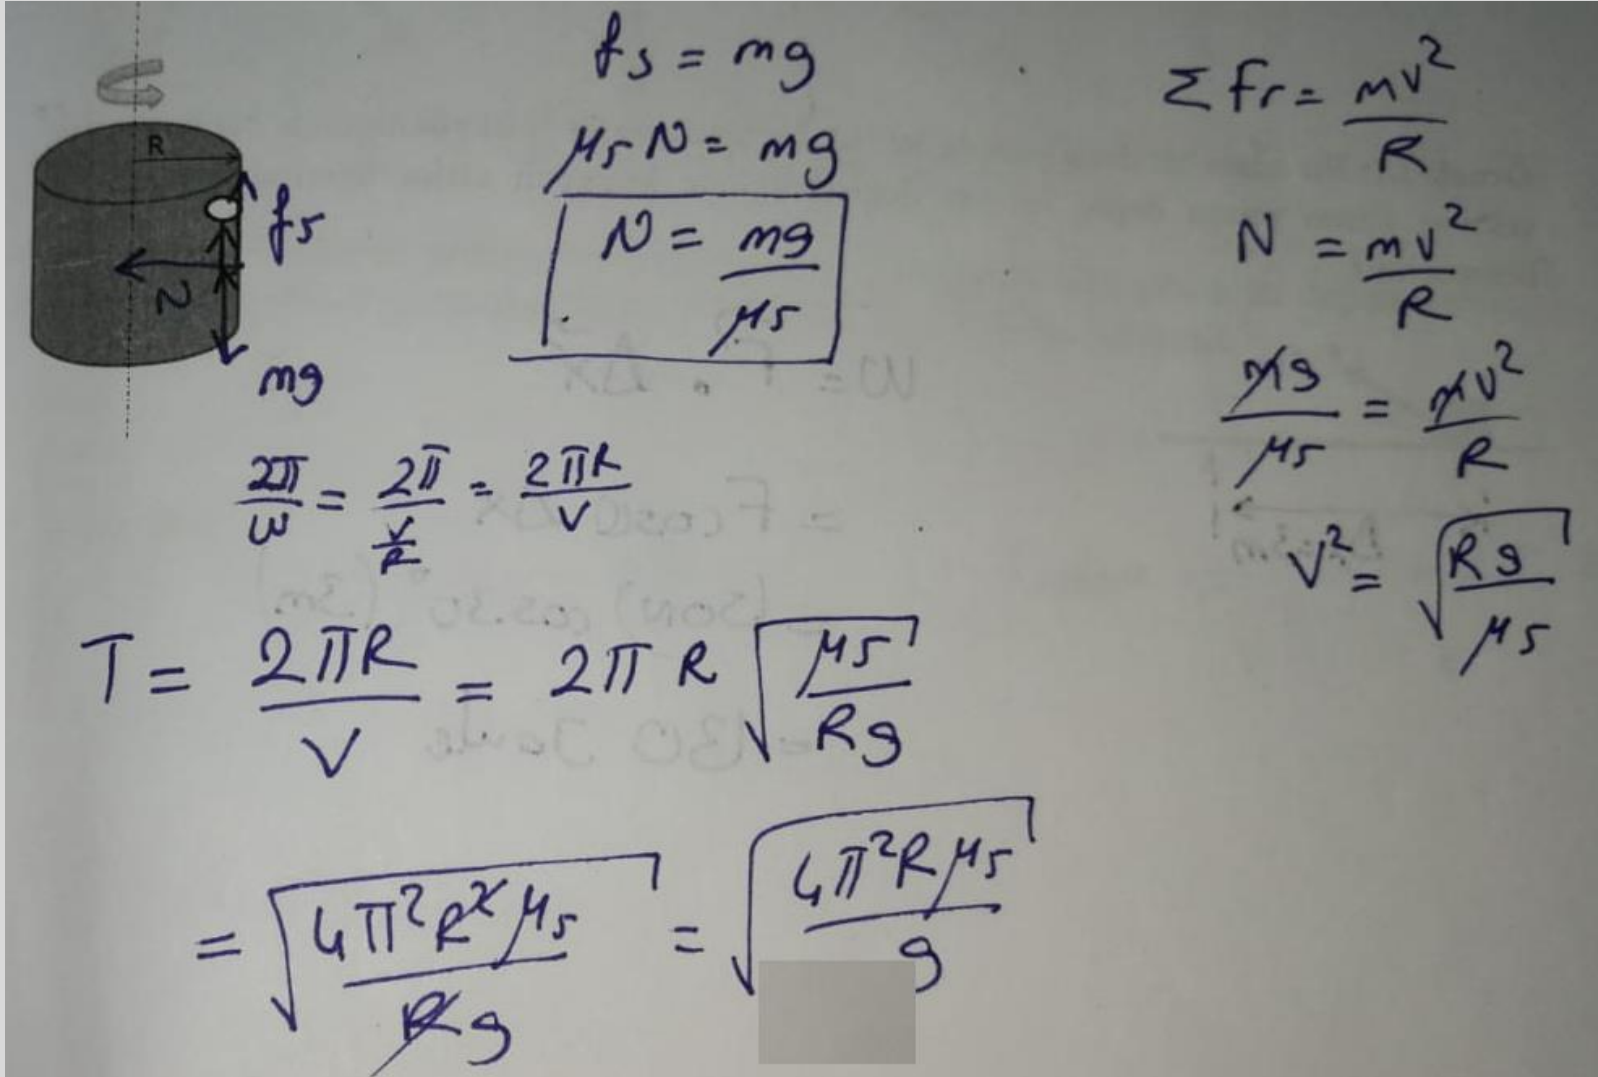 R
fs
N
mg
fs = mg
μs N = mg
N = mg/μs
Σ Fr = mv²/R
N = mv²/R
mg/μs = mv²/R
v² = √(Rg/μs)
2π/ω = 2π/(v/R) = 2πR/v
T = 2πR/v = 2πR √(μs/Rg)
= √(4π²R²μs/Rg) = √(4π²Rμs/g)